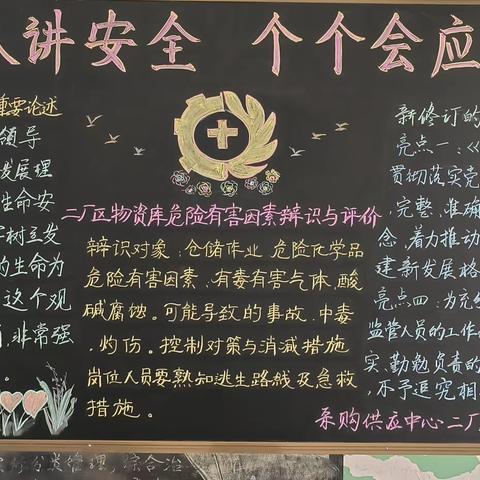 人讲安全 个个会应
重要论述
领导
发展理
生命安
牢树立发
的生命为
这个观
非常强
。
二厂区物资库危险有害因素辩识与评价
辩识对象：仓储作业 危险化学品
危险有害因素：有毒有害气体，酸
碱腐蚀。可能导致的事故：中毒
，灼伤。控制对策与消减措施
岗位人员要熟知逃生路线及急救
措施。
新修订的
亮点一：《
贯彻落实党
，完整，准确
念，着力推动
建新发展格
亮点四：为充
监管人员的工作
实，勤勉负责的
，不予追究相
采购供应中心二厂
分类管理，综合治